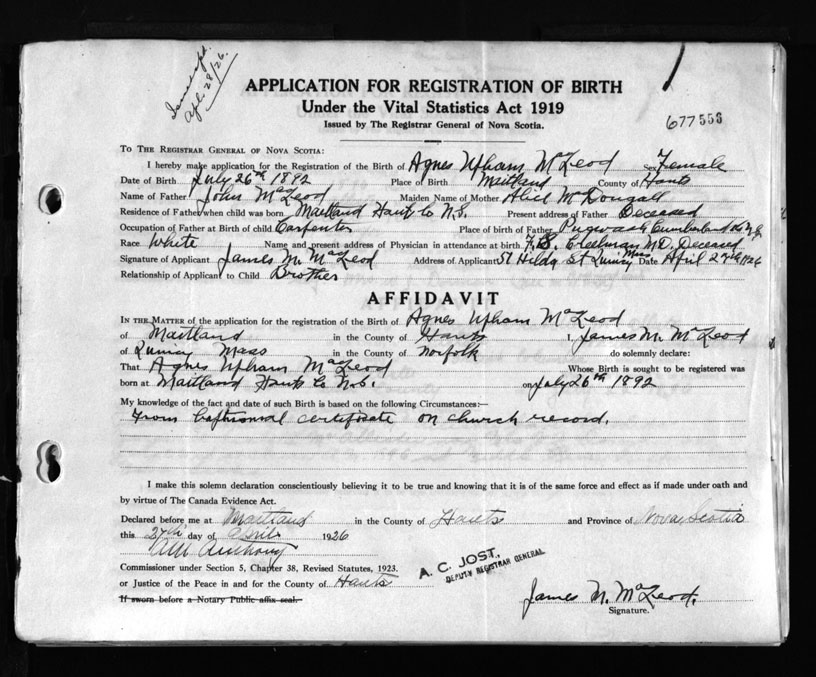 Issued
Apl. 28/26.
APPLICATION FOR REGISTRATION OF BIRTH
Under the Vital Statistics Act 1919
Issued by The Registrar General of Nova Scotia.
677553
TO THE REGISTRAR GENERAL OF NOVA SCOTIA:
I hereby make application for the Registration of the Birth of Agnes Upham McLeod Sex Female
Date of Birth July 26th 1892 Place of Birth Maitland County of Hants
Name of Father John McLeod Maiden Name of Mother Alice McDougall
Residence of Father when child was born Maitland Hants Co N.S. Present address of Father Deceased
Occupation of Father at Birth of child Carpenter Place of birth of Father Pugwash Cumberland Co N.S.
Race White Name and present address of Physician in attendance at birth F.S. Creelman M.D. Deceased
Signature of Applicant James M. McLeod Address of Applicant 51 Hilda St Quincy Mass Date April 27th 1926
Relationship of Applicant to Child Brother
AFFIDAVIT
IN THE MATTER of the application for the registration of the Birth of Agnes Upham McLeod
of Maitland in the County of Hants I, James M. McLeod
of Quincy Mass in the County of Norfolk do solemnly declare:
That Agnes Upham McLeod Whose Birth is sought to be registered was
born at Maitland Hants Co N.S. on July 26th 1892
My knowledge of the fact and date of such Birth is based on the following Circumstances:—
From baptismal certificate on church record.
I make this solemn declaration conscientiously believing it to be true and knowing that it is of the same force and effect as if made under oath and
by virtue of The Canada Evidence Act.
Declared before me at Maitland in the County of Hants and Province of Nova Scotia
this 27th day of April 1926
Anthony
Commissioner under Section 5, Chapter 38, Revised Statutes, 1923.
or Justice of the Peace in and for the County of Hants
A. C. JOST,
DEPUTY REGISTRAR GENERAL
If sworn before a Notary Public affix seal.
James M. McLeod.
Signature.